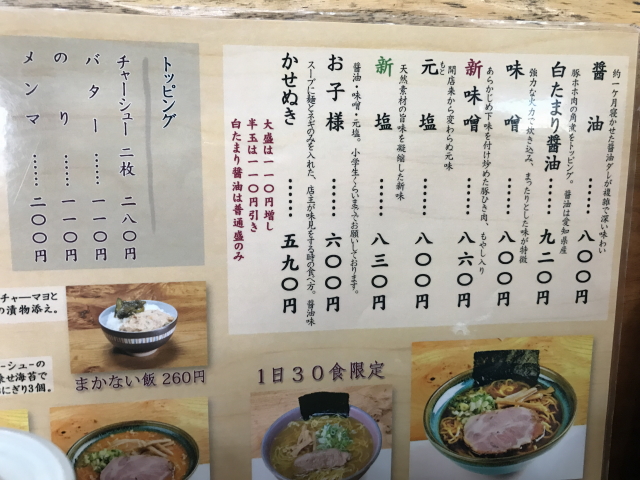 約一ケ月寝かせた醤油ダレが複雑で深い味わい
醤油……八〇〇円
豚ホホ肉の角煮をトッピング。醤油は愛知県産
白たまり醤油……九二〇円
強力な火力で炊き込み、まったりとした味が特徴
味噌……八〇〇円
あらかじめ下味を付け炒めた豚ひき肉、もやし入り
新味噌……八六〇円
開店来から変わらぬ元味
元塩……八〇〇円
もと
天然素材の旨味を凝縮した新味
新塩……八三〇円
醤油・味噌・元塩。小学生くらいまでお願いしております。
お子様……六〇〇円
スープに麺とネギのみを入れた、店主が味見をする時の食べ方。醤油味
かせぬき……五九〇円
大盛は一一〇円増し
半玉は一一〇円引き
白たまり醤油は普通盛のみ
トッピング
チャーシュー二枚 二八〇円
バター……一一〇円
のり……一一〇円
メンマ……二〇〇円
チャーマヨと
の漬物添え。
まかない飯 260円
ーシューの
せ海苔で
にぎり3個。
1日30食限定